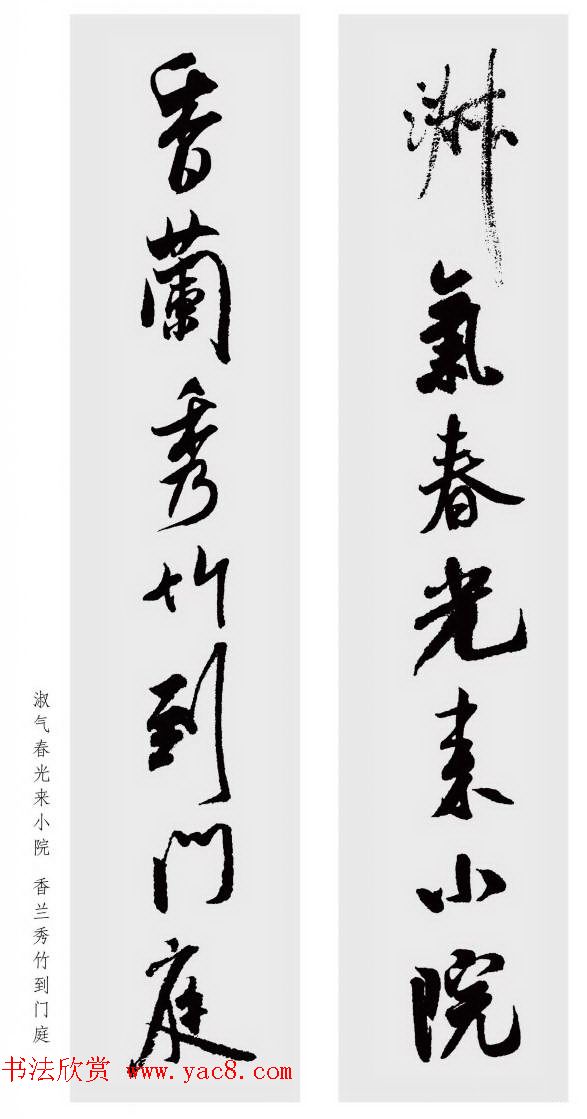 淑氣春光来小院
香蘭秀竹到門庭
淑气春光来小院 香兰秀竹到门庭
书法欣赏 www.yac8.com